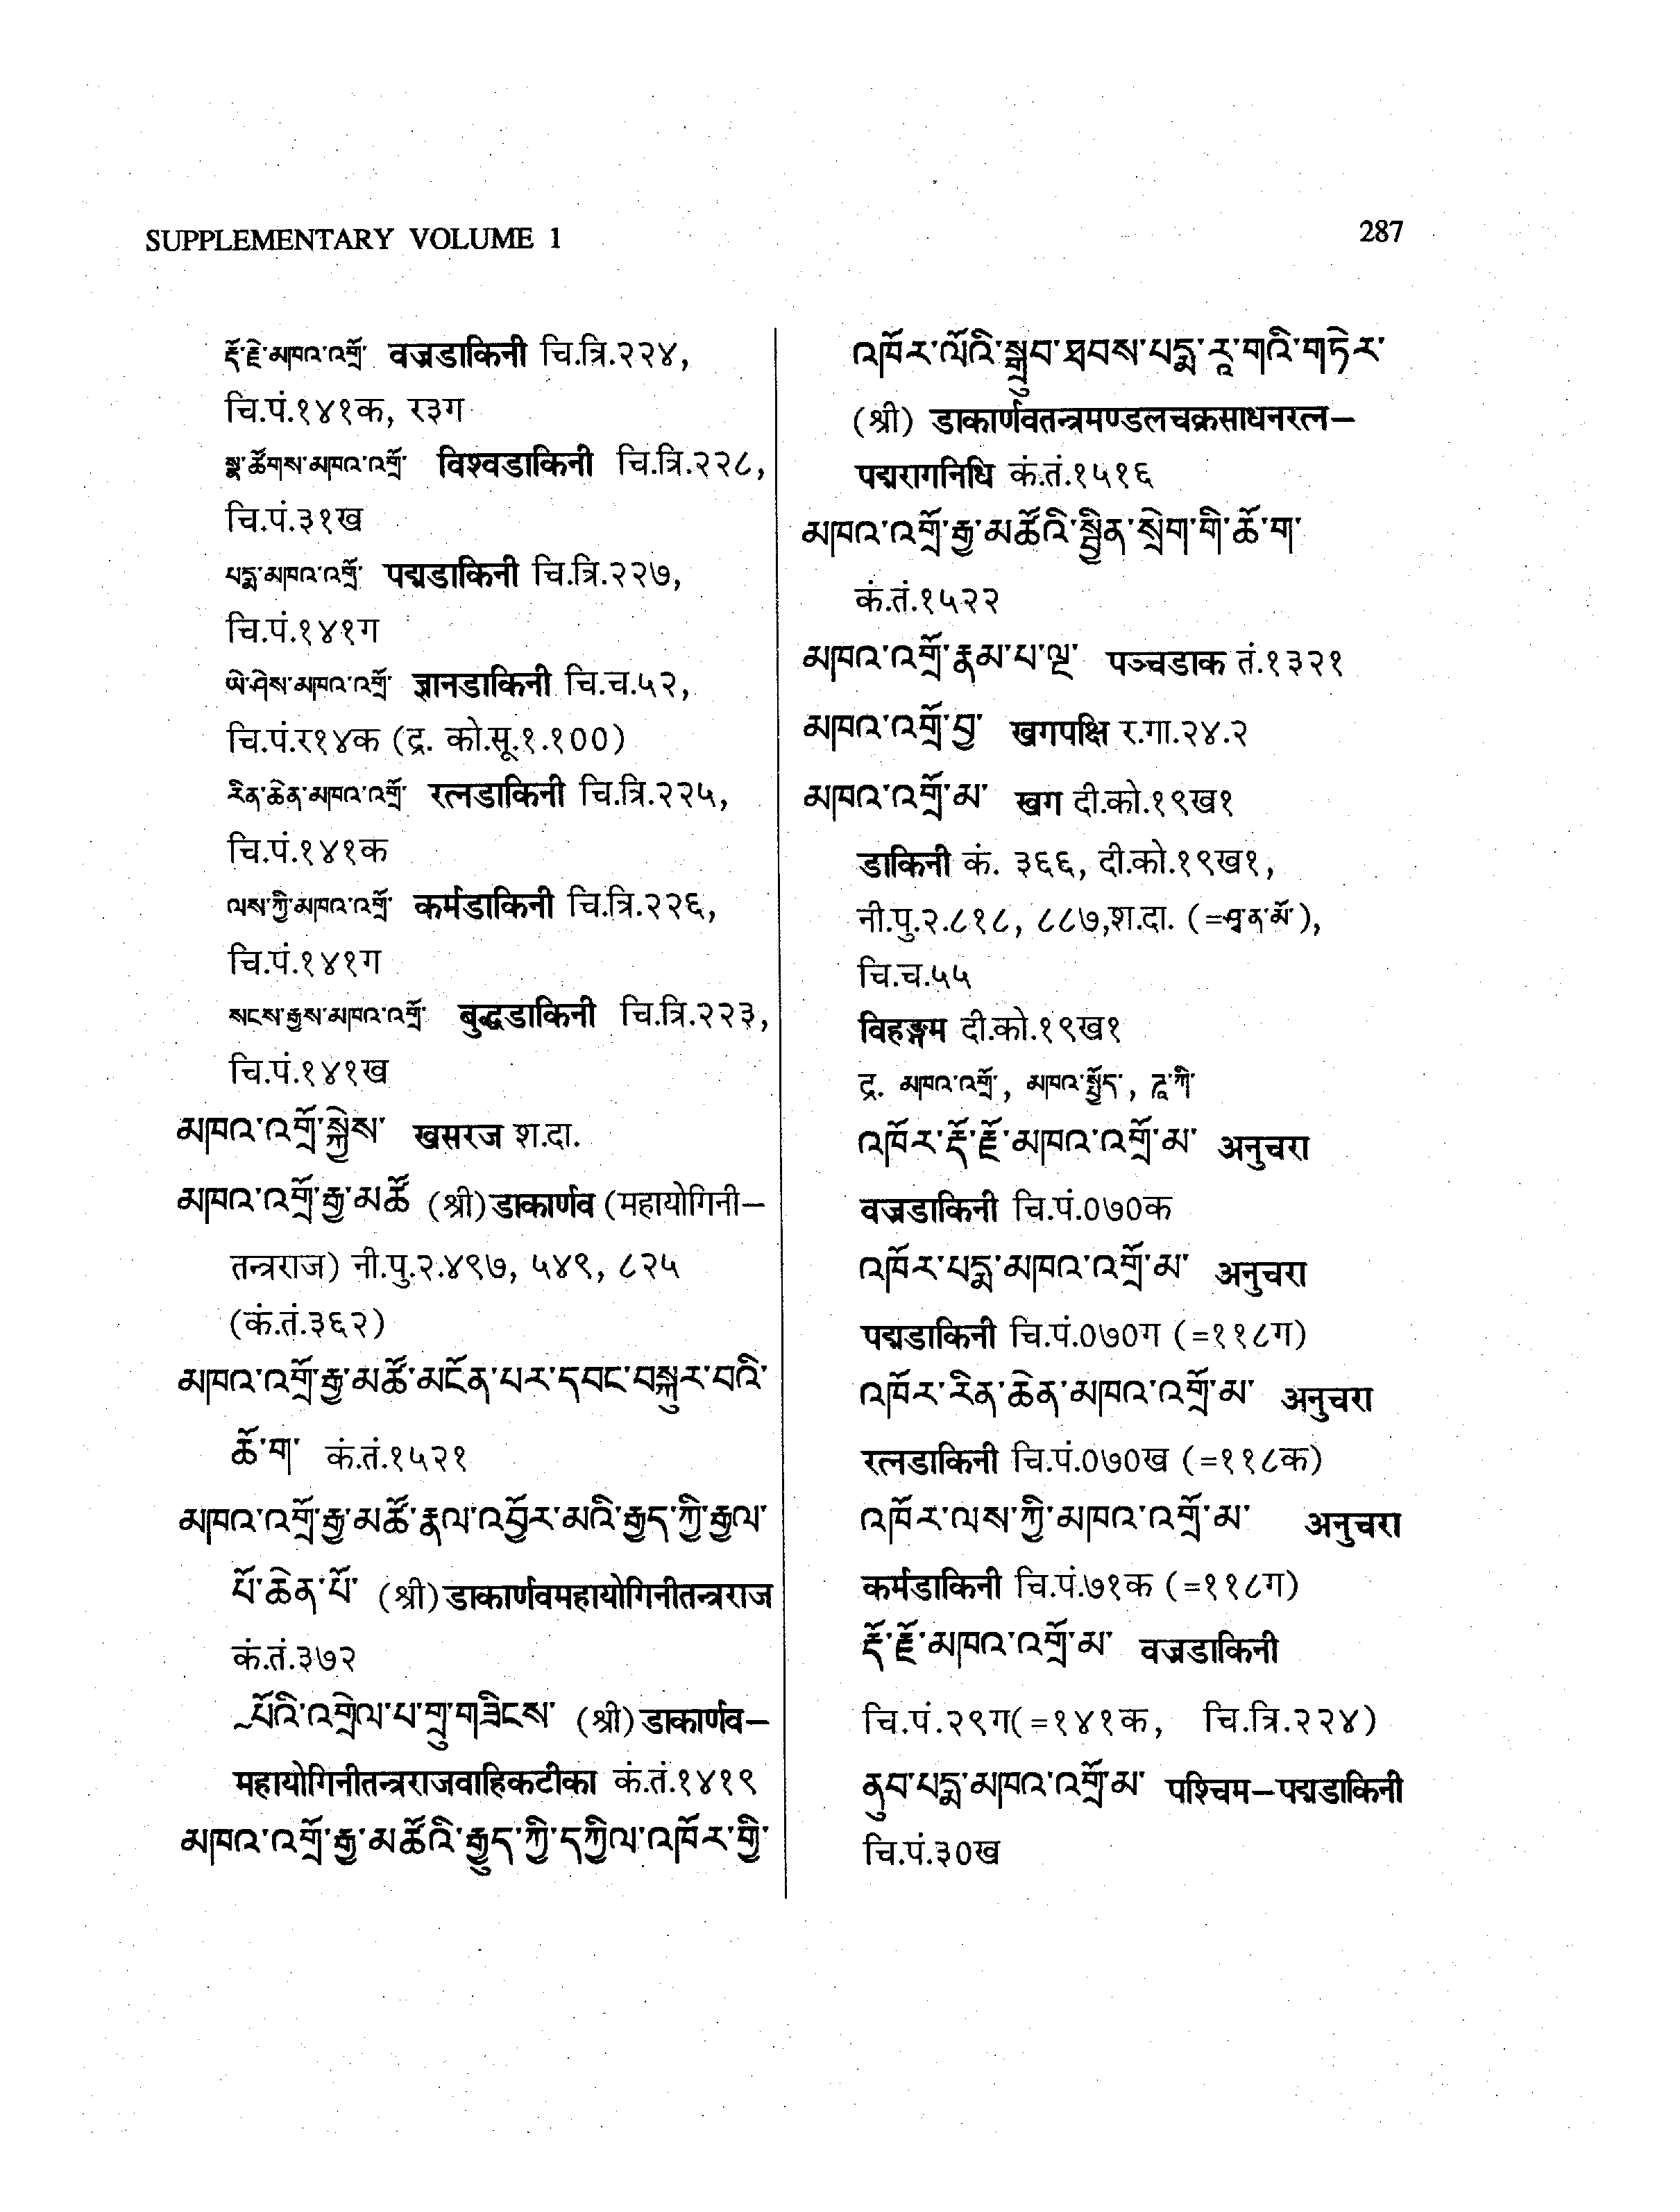 SUPPLEMENTARY VOLUME 1
287
རྡོ་རྗེ་མཁའ་འགྲོ་ वज्रडाकिनी चि.त्रि.२२४,
चि.पं.१४१क, र३ग
སྣ་ཚོགས་མཁའ་འགྲོ་ विश्वडाकिनी चि.त्रि.२२८,
चि.पं.३१ख
པདྨ་མཁའ་འགྲོ་ पद्मडाकिनी चि.त्रि.२२७,
चि.पं.१४१ग
ཡེ་ཤེས་མཁའ་འགྲོ་ ज्ञानडाकिनी चि.च.५२,
चि.पं.र१४क (द्र. को.सू.१.१००)
རིན་ཆེན་མཁའ་འགྲོ་ रत्नडाकिनी चि.त्रि.२२५,
चि.पं.१४१क
ལས་ཀྱི་མཁའ་འགྲོ་ कर्मडाकिनी चि.त्रि.२२६,
चि.पं.१४१ग
སངས་རྒྱས་མཁའ་འགྲོ་ बुद्धडाकिनी चि.त्रि.२२३,
चि.पं.१४१ख
མཁའ་འགྲོ་སྐྱེས་ खसरज श.दा.
མཁའ་འགྲོ་རྒྱ་མཚོ (श्री)डाकार्णव (महायोगिनी–
तन्त्रराज) नी.पु.२.४९७, ५४९, ८२५
(कं.तं.३६२)
མཁའ་འགྲོ་རྒྱ་མཚོ་མངོན་པར་དབང་བསྐུར་བའི་
ཆོ་ག་ कं.तं.१५२१
མཁའ་འགྲོ་རྒྱ་མཚོ་རྣལ་འབྱོར་མའི་རྒྱད་ཀྱི་རྒྱལ་
པོ་ཆེན་པོ་ (श्री)डाकार्णवमहायोगिनीतन्त्रराज
कं.तं.३७२
~པོའི་འགྲེལ་པ་གྲུ་གཟིངས་ (श्री)डाकार्णव–
महायोगिनीतन्त्रराजवाहिकटीका कं.तं.१४१९
མཁའ་འགྲོ་རྒྱ་མཚོའི་རྒྱུད་ཀྱི་དཀྱིལ་འཁོར་གྱི་
འཁོར་ལོའི་སྒྲུབ་ཐབས་པདྨ་རཱ་གའི་གཏེར་
(श्री) डाकार्णवतन्त्रमण्डलचक्रसाधनरत्न–
पद्मरागनिधि कं.तं.१५१६
མཁའ་འགྲོ་རྒྱ་མཚོའི་སྦྱིན་སྲེག་གི་ཆོ་ག་
कं.तं.१५२२
མཁའ་འགྲོ་རྣམ་པ་ལྔ་ पञ्चडाक तं.१३२१
མཁའ་འགྲོ་བྱ་ खगपक्षि र.गा.२४.२
མཁའ་འགྲོ་མ་ खग दी.को.१९ख१
डाकिनी कं. ३६६, दी.को.१९ख१,
नी.पु.२.८१८, ८८७,श.दा. (=
),
चि.च.५५
विहङ्गम दी.को.१९ख१
द्र. མཁའ་འགྲོ་, མཁའ་སྤྱོད་, ཌཱ་ཀི་
འཁོར་རྡོ་རྗོ་མཁའ་འགྲོ་མ་ अनुचरा
वज्रडाकिनी चि.पं.०७०क
འཁོར་པདྨ་མཁའ་འགྲོ་མ་ अनुचरा
पद्मडाकिनी चि.पं.०७०ग (=११८ग)
འཁོར་རིན་ཆེན་མཁའ་འགྲོ་མ་ अनुचरा
रत्नडाकिनी चि.पं.०७०ख (=११८क)
འཁོར་ལས་ཀྱི་མཁའ་འགྲོ་མ་ अनुचरा
कर्मडाकिनी चि.पं.७१क (=११८ग)
རྡོ་རྗོ་མཁའ་འགྲོ་མ་ वज्रडाकिनी
चि.पं.२९ग(=१४१क, चि.त्रि.२२४)
ནུབ་པདྨ་མཁའ་འགྲོ་མ་ पश्चिम–पद्मडाकिनी
चि.पं.३०ख